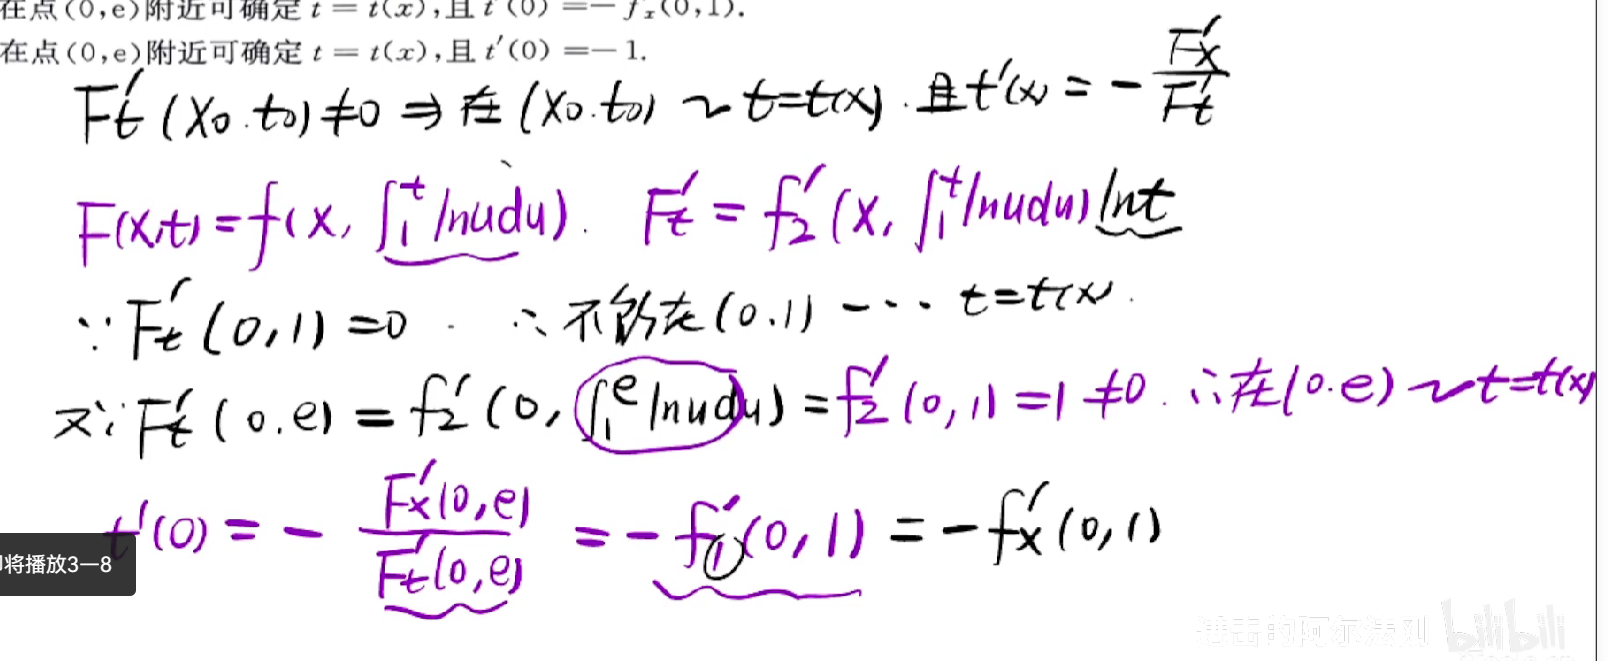 在点(0,e)附近可确定 t = t(x),且 t'(0) =− f'ₓ(0,1).
在点(0,e)附近可确定 t = t(x),且 t'(0) =− 1.
F't (x0.t0)≠0 ⇒ 在 (x0.t0) ~ t=t(x). 且 t'(x) = - F'x/F't
F(x,t) = f(x, ∫₁ᵗ lnudu). F't = f'2 (x, ∫₁ᵗ lnudu) lnt
∵ F't (0,1) =0 . ∴ 不能在(0.1) --- t=t(x).
又∵ F't (0.e) = f'2 (0, ∫₁ᵉ lnudu) = f'2 (0,1) =1 ≠0. ∴在(0.e) ~ t=t(x)
t'(0) = - F'x(0,e)/F't(0,e) = - f'1(0,1) = - f'x(0,1)
将播放3—8
进击的阿尔法刚 bilibili